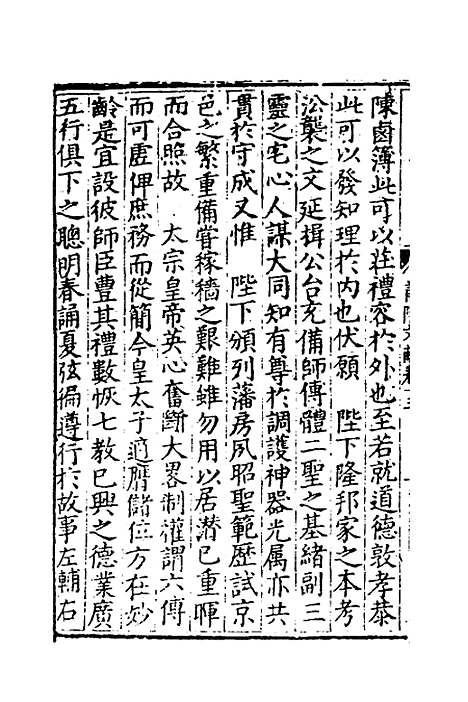 陳鹵簿此可以莊禮容扵外也至若就道德敦孝恭
此可以發知理扵内也伏願　陛下隆邦家之本考
㳂襲之文延揖公台充備師傅體二聖之基緒副三
靈之宅心人謀大同知有尊扵調護神器光属亦共
貫扵守成又惟　陛下頒列藩房夙昭聖範歴試京
邑之繁重備甞稼穡之艱難雖勿用以居潜已重暉
而合照故　太宗皇帝英心奮斷大畧制權謂六傅
而可虚俾庶務而從簡今皇太子適膺儲位方在妙
齡是宜設彼師臣豊其禮數恢七教已興之德業廣
五行俱下之聰明春誦夏弦徧遵行扵故事左輔右